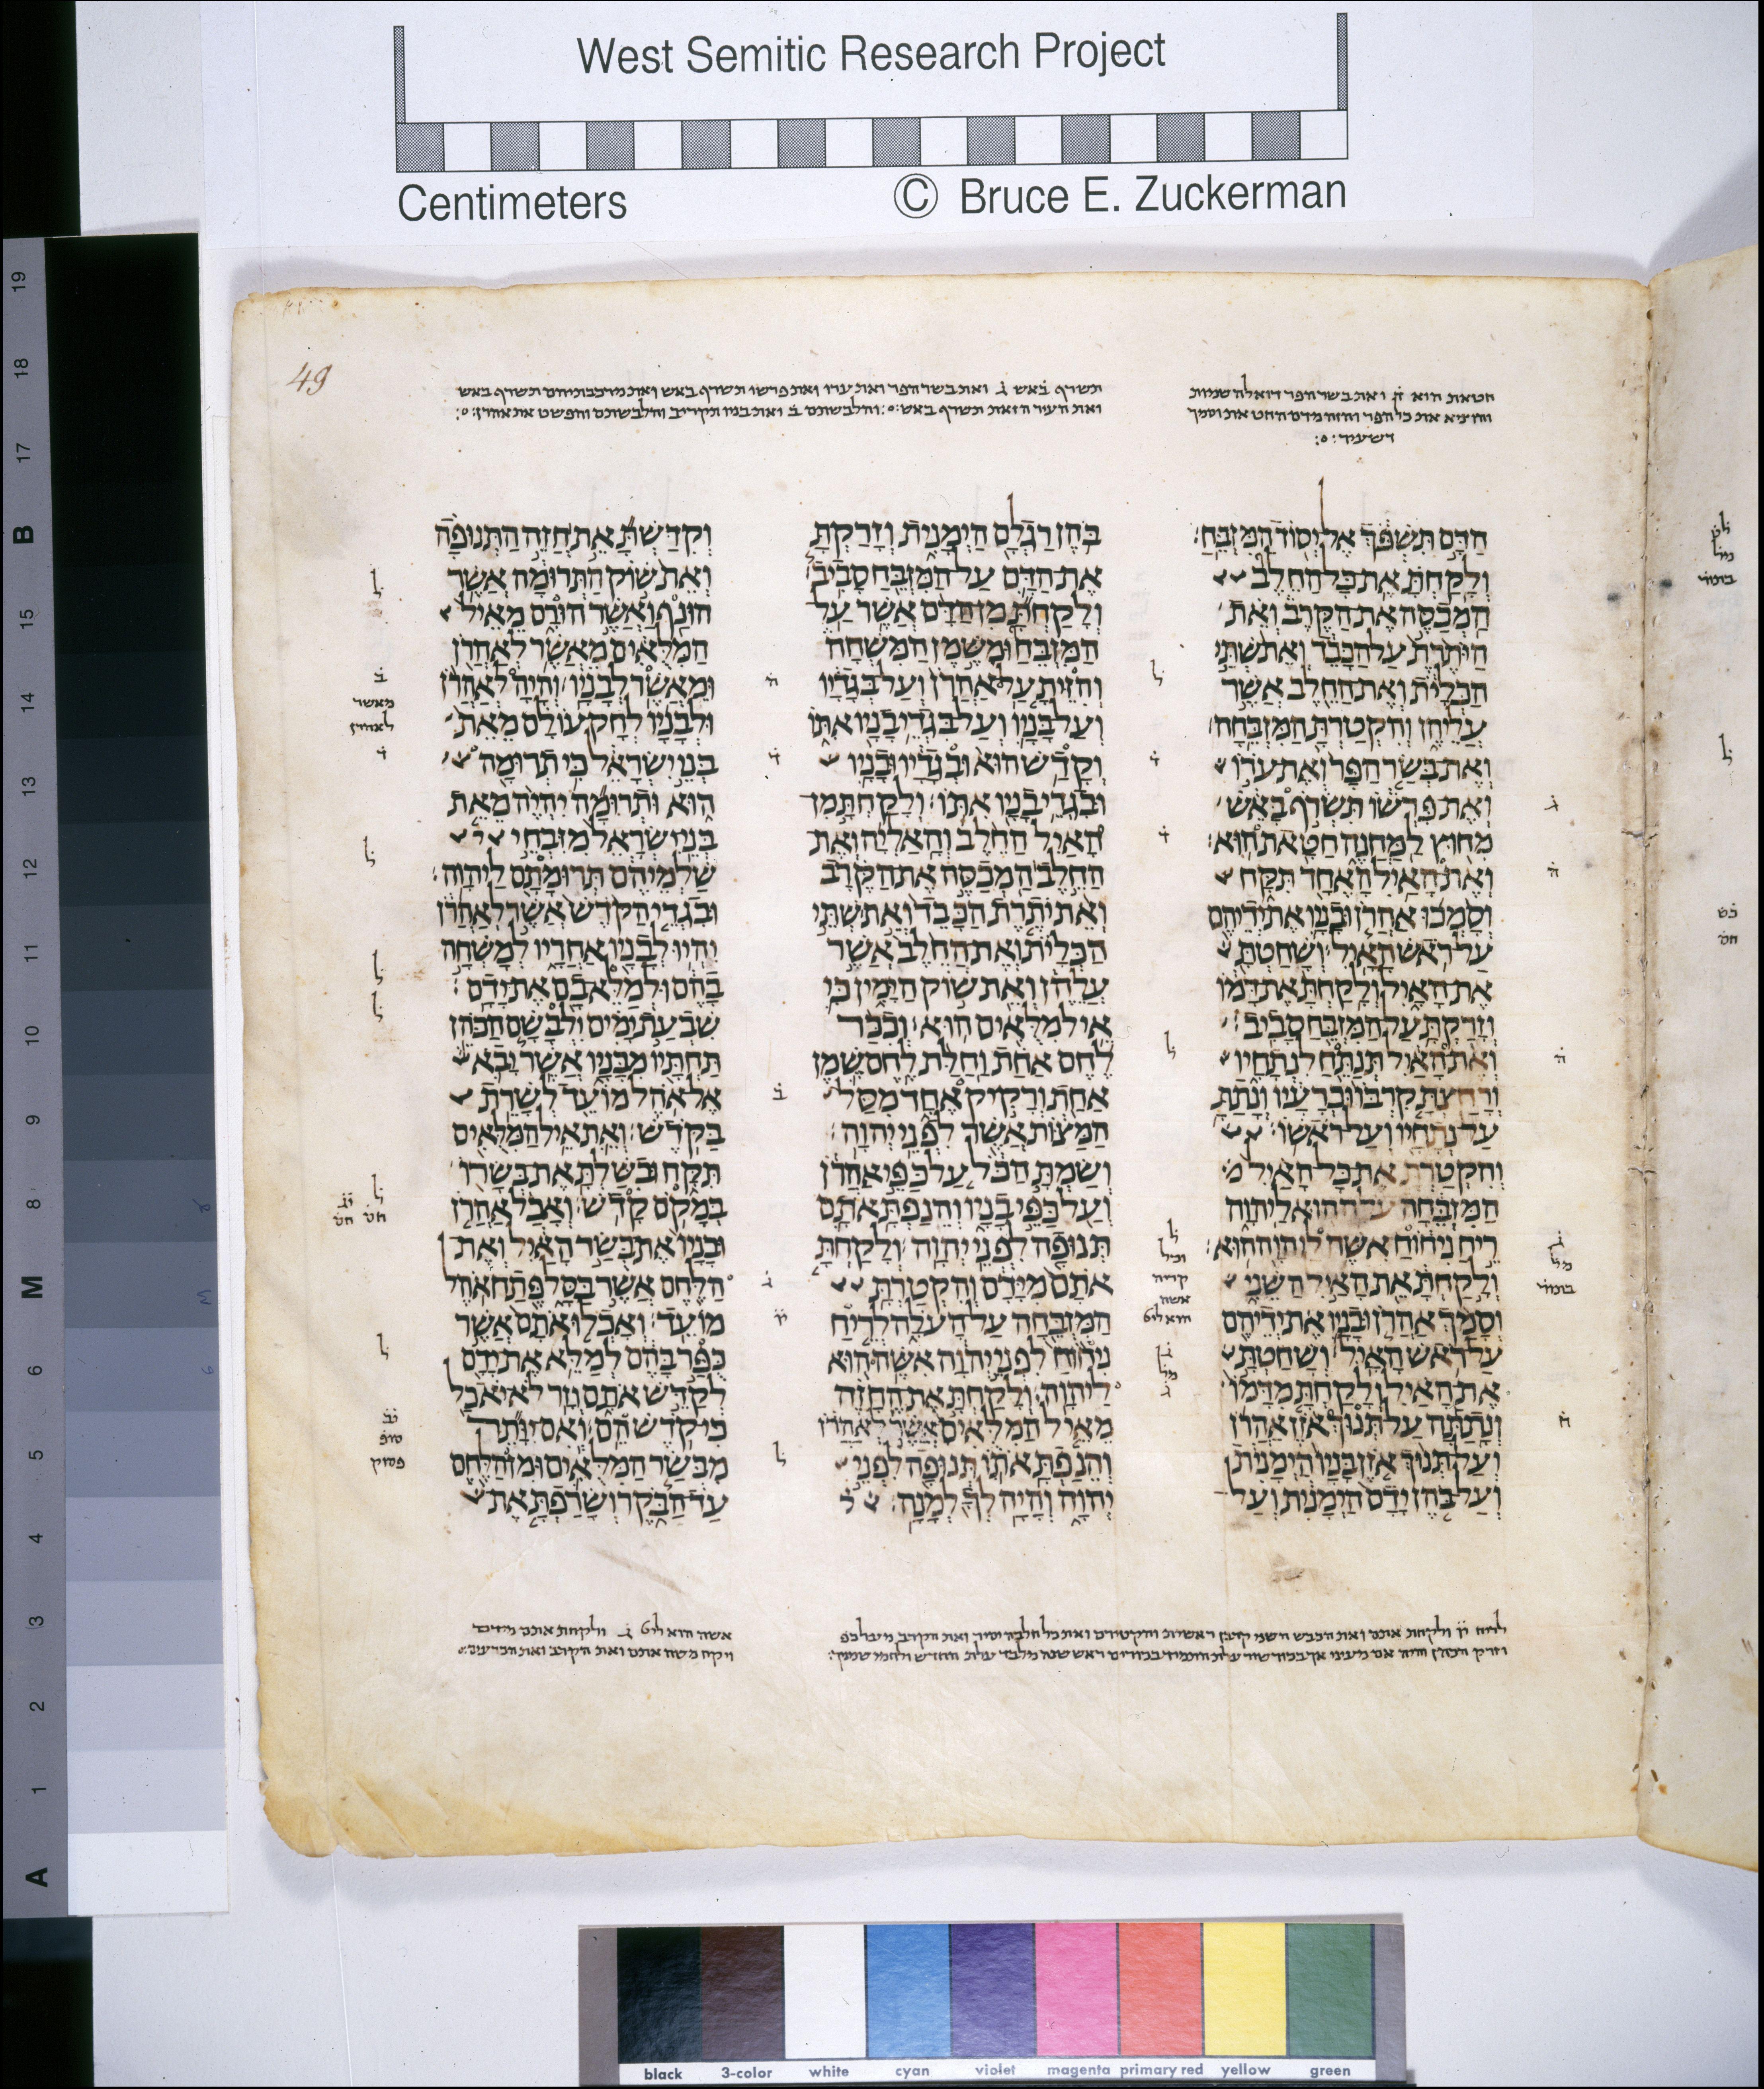 West Semitic Research Project
Centimeters © Bruce E. Zuckerman
49
חטאת הוא ה ואת בשר הפר דואלה שמות
והוציא את כל הפר והזה מדם החטאת וסמך
דשעיר
תשרף באש ג ואת בשר הפר ואת ערו ואת פרשו תשרף באש ואת מרכבתיהם תשרף באש
ואת העיר הזאת תשרף באש והלבשתם ב ואת בניו תקריב והלבשתם והפשט את אהרן
הדם תשפך אל יסוד המזבח׃
ולקחת את כל החלב
המכסה את הקרב ואת
היתרת על הכבד ואת שתי
הכלית ואת החלב אשר
עליהן והקטרת המזבחה׃
ואת בשר הפר ואת ערו
ואת פרשו תשרף באש
מחוץ למחנה חטאת הוא׃
ואת האיל האחד תקח
וסמכו אהרן ובניו את ידיהם
על ראש האיל׃ ושחטת
את האיל ולקחת את דמו
וזרקת על המזבח סביב׃
ואת האיל תנתח לנתחיו
ורחצת קרבו וכרעיו ונתת
על נתחיו ועל ראשו׃
והקטרת את כל האיל
המזבחה עלה הוא ליהוה
ריח ניחוח אשה ליהוה הוא׃
ולקחת את האיל השני
וסמך אהרן ובניו את ידיהם
על ראש האיל׃ ושחטת
את האיל ולקחת מדמו
ונתתה על תנוך אזן אהרן
ועל תנוך אזן בניו הימנית
ועל בהן ידם הימנית ועל
בהן רגלם הימנית וזרקת
את הדם על המזבח סביב׃
ולקחת מן הדם אשר על
המזבח ומשמן המשחה
והזית על אהרן ועל בגדיו
ועל בניו ועל בגדי בניו אתו
וקדש הוא ובגדיו ובניו
ובגדי בניו אתו׃ ולקחת מן
האיל החלב והאליה ואת
החלב המכסה את הקרב
ואת יתרת הכבד ואת שתי
הכלית ואת החלב אשר
עלהן ואת שוק הימין כי
איל מלאים הוא׃ וככר
לחם אחת וחלת לחם שמן
אחת ורקיק אחד מסל
המצות אשר לפני יהוה׃
ושמת הכל על כפי אהרן
ועל כפי בניו והנפת אתם
תנופה לפני יהוה׃ ולקחת
אתם מידם והקטרת
המזבחה על העלה לריח
ניחוח לפני יהוה אשה הוא
ליהוה׃ ולקחת את החזה
מאיל המלאים אשר לאהרן
והנפת אתו תנופה לפני
יהוה והיה לך למנה׃
וקדשת את חזה התנופה
ואת שוק התרומה אשר
הונף ואשר הורם מאיל
המלאים מאשר לאהרן
ומאשר לבניו׃ והיה לאהרן
ולבניו לחק עולם מאת
בני ישראל כי תרומה
הוא ותרומה יהיה מאת
בני ישראל מזבחי
שלמיהם תרומתם ליהוה׃
ובגדי הקדש אשר לאהרן
יהיו לבניו אחריו למשחה
בהם ולמלא בם את ידם׃
שבעת ימים ילבשם הכהן
תחתיו מבניו אשר יבא
אל אהל מועד לשרת
בקדש׃ ואת איל המלאים
תקח ובשלת את בשרו
במקם קדש׃ ואכל אהרן
ובניו את בשר האיל ואת
הלחם אשר בסל פתח אהל
מועד׃ ואכלו אתם אשר
כפר בהם למלא את ידם
לקדש אתם וזר לא יאכל
כי קדש הם׃ ואם יותר
מבשר המלאים ומן הלחם
עד הבקר ושרפת את
ב
מאשר
לאהרן
יב
סופ
פסוק
אשה הוא לי ג ולקחת אתם מידם
ויקח משה אתם ואת הקרב ואת הכרעים
black 3-color white cyan violet magenta primary red yellow green
A 1 2 3 4 5 6 M 8 9 10 11 12 13 14 15 B 17 18 19